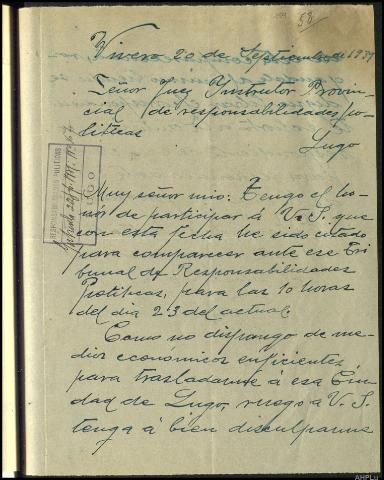 58
Vivero 20 de Septiembre de 1939
Señor Juez Instructor Provin-
cial de responsabilidades po-
liticas
Lugo
Muy señor mio: Tengo el ho-
nor de participar á V.S. que
con esta fecha he sido citado
para comparecer ante ese Tri-
bunal de Responsabilidades
Politicas, para las 10 horas
del dia 23 del actual.
Como no dispongo de me-
dios economicos suficientes
para trasladarme á esa Ciu-
dad de Lugo, ruego á V.S.
tenga á bien disculparme
RESPONSABILIDADES POLITICAS
LUGO
AHPLu